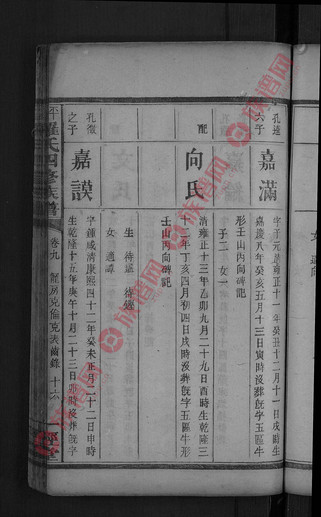 孔達
六子
嘉滿
字子元清雍正十一年癸丑十二月十一日戌時生
嘉慶八年癸亥五月十三日寅時沒葬蜈字五區牛
形壬山丙向碑記
子二 女一
配
向氏
清雍正十三年乙卯九月二十九日酉時生乾隆三
十二年丁亥四月初四日戌時沒葬蜈字五區牛形
壬山丙向碑記
生 待
女 適譚
孔徵
之子
嘉謨
字鍾咸清康熙四十二年癸未正月二十二日申時
生乾隆十五年庚午十月二十三日卯時沒葬蜈字
平 羅氏四修族譜
卷九
克倫克表齒錄
十六
一經堂